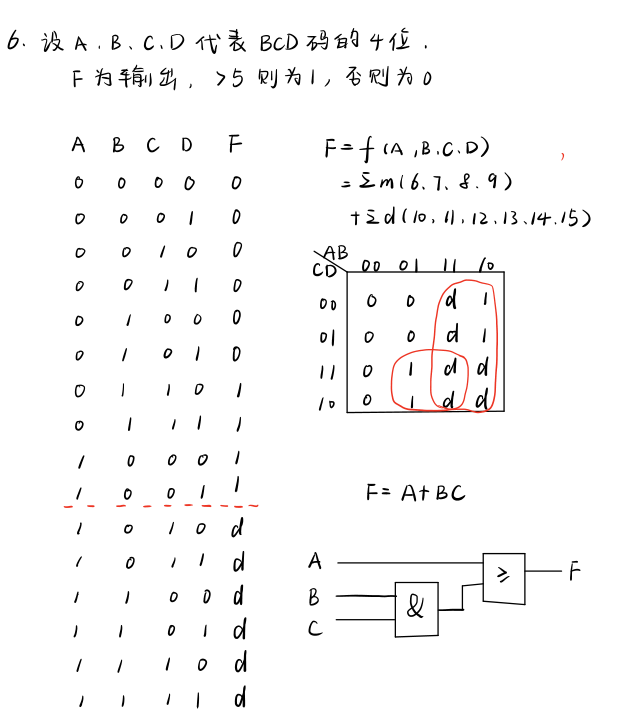 6. 设 A.B.C.D 代表 BCD 码的 4 位.
F 为输出, >5 则为 1, 否则为 0
A B C D F
0 0 0 0 0
0 0 0 1 0
0 0 1 0 0
0 0 1 1 0
0 1 0 0 0
0 1 0 1 0
0 1 1 0 1
0 1 1 1 1
1 0 0 0 1
1 0 0 1 1
1 0 1 0 d
1 0 1 1 d
1 1 0 0 d
1 1 0 1 d
1 1 1 0 d
1 1 1 1 d
F = f (A,B.C.D)
= Σm(6.7.8.9)
+Σd(10,11,12.13.14.15)
AB
CD 00 01 11 10
00 0 0 d 1
01 0 0 d 1
11 0 1 d d
10 0 1 d d
F = A+BC
A
B
C
&
≥
F